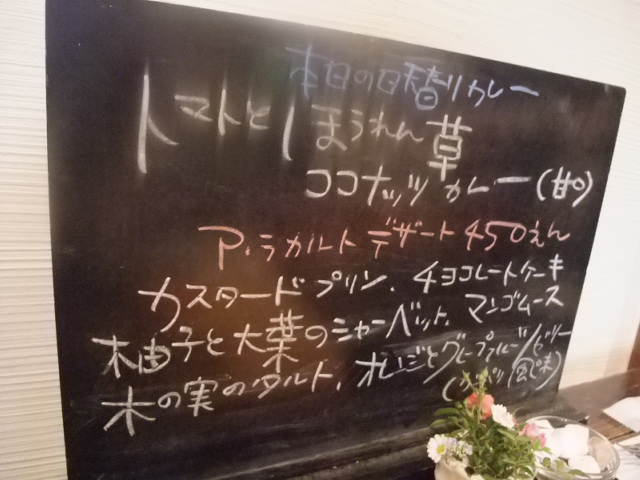 本日の日替りカレー
トマトとほうれん草
ココナッツカレー(甘口)
ア・ラカルトデザート450えん
カスタードプリン、チョコレートケーキ
柚子と大葉のシャーベット、マンゴームース
木の実のタルト、オレンジとグレープフルーツゼリー
風味)